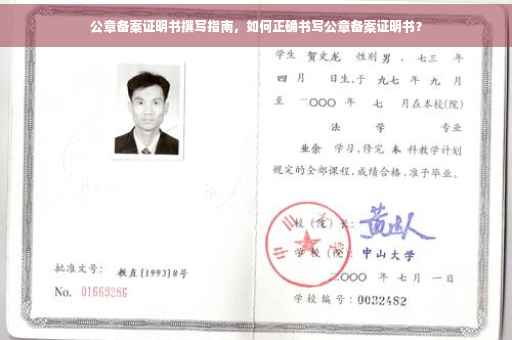 公章备案证明书撰写指南，如何正确书写公章备案证明书？
学生 贺文龙 性别 男 ，七三 年
四 月 日生，于 九七 年 九 月
至 二〇〇〇 年 七 月在本校(院)
法 学 专业
业余 学习，修完 本 科教学计划
规定的全部课程，成绩合格，准予毕业。
校 (院) 长：
学 校 (院)： 中山大学
二〇〇〇 年 七 月 一 日
学校编号：0032482
批准文号： 教直[1993]8号
No. 01669286